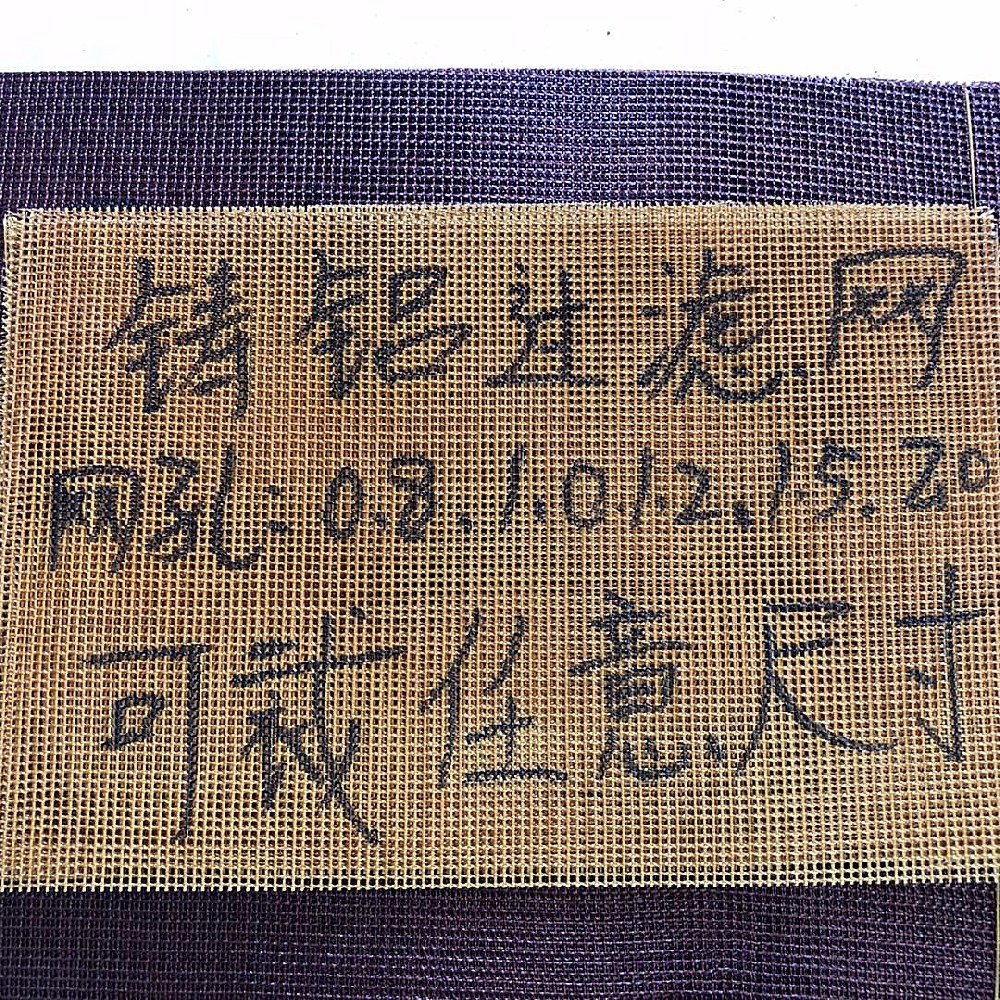 铸铝过滤网
网孔:0.8.1.0 1.2.1.5.20
可裁任意尺寸